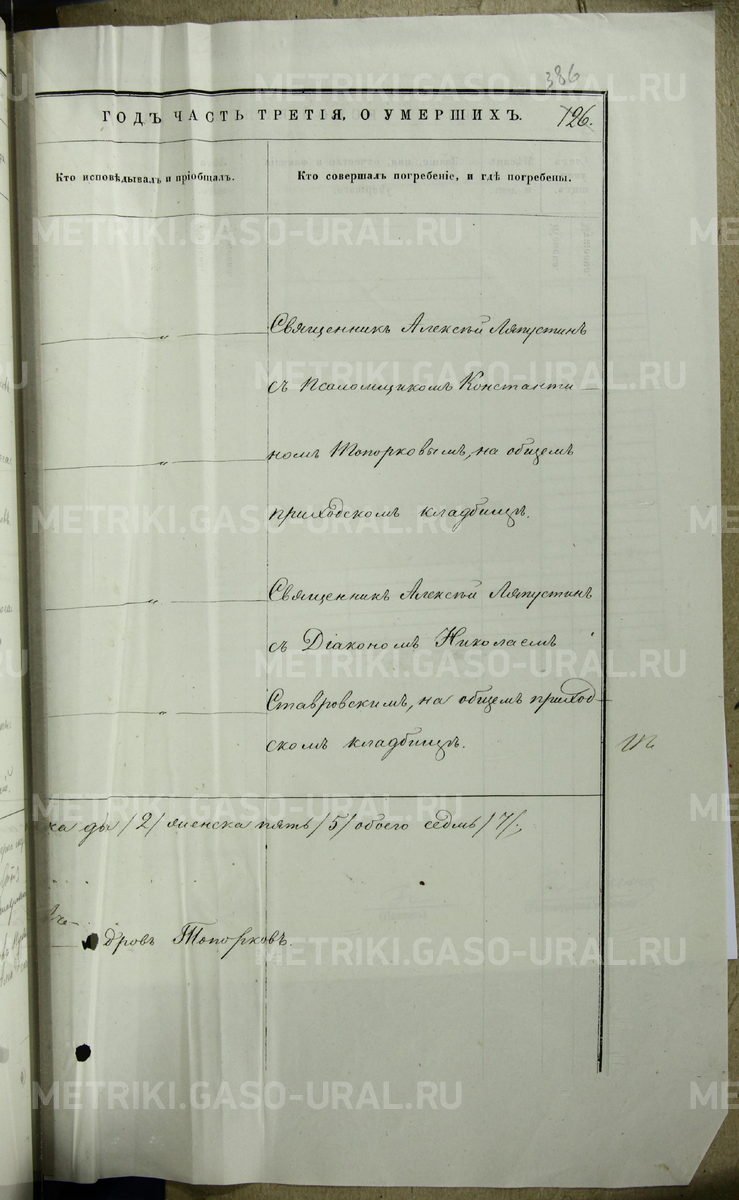 386
ГОДЪ ЧАСТЬ ТРЕТІЯ, О УМЕРШИХЪ.
126.
Кто исповѣдывалъ и пріобщалъ.
Кто совершалъ погребеніе, и гдѣ погребены.
Священникъ Алексѣй Ляпустинъ
съ Псаломщикомъ Константи
номъ Топорковымъ, на общемъ
приходскомъ кладбищѣ.
Священникъ Алексѣй Ляпустинъ
съ Діакономъ Николаемъ
Ставровскимъ, на общемъ приход-
скомъ кладбищѣ.
ка два /2/ женска пять /5/ обоего седмь /7/.
дровъ Топорковъ.
METRIKI.GASO-URAL.RU